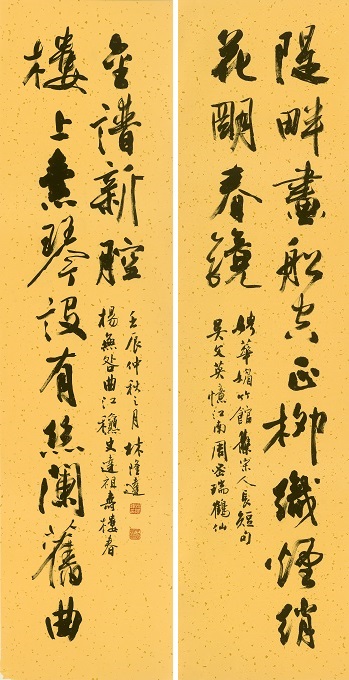 隄畔畫船空正柳織煙綃
花春鏡
華媚竹館集宋人長短句
吳文英憶江南周密瑞鶴仙
金譜新腔
壬辰仲秋之月林隆達
楊無咎曲江穐史達祖壽樓春
樓上素琴設有絲闌舊曲